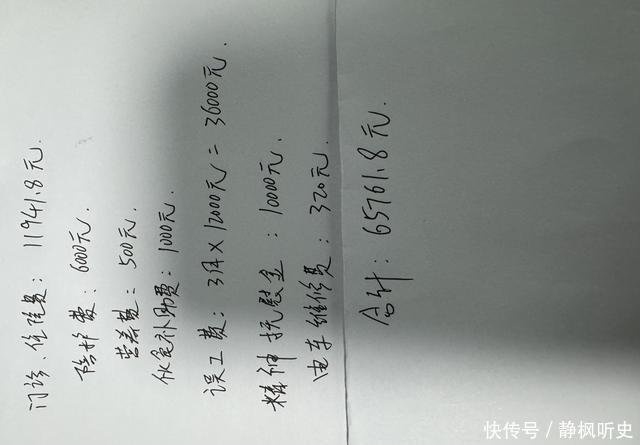 门诊、住院费：11941.8元.
陪护费：6000元.
营养费：500元.
伙食补助费：1000元.
误工费：3月×12000元=36000元.
精神抚慰金：10000元.
电车维修费：320元.
合计：65761.8元.
快传号/静枫听史